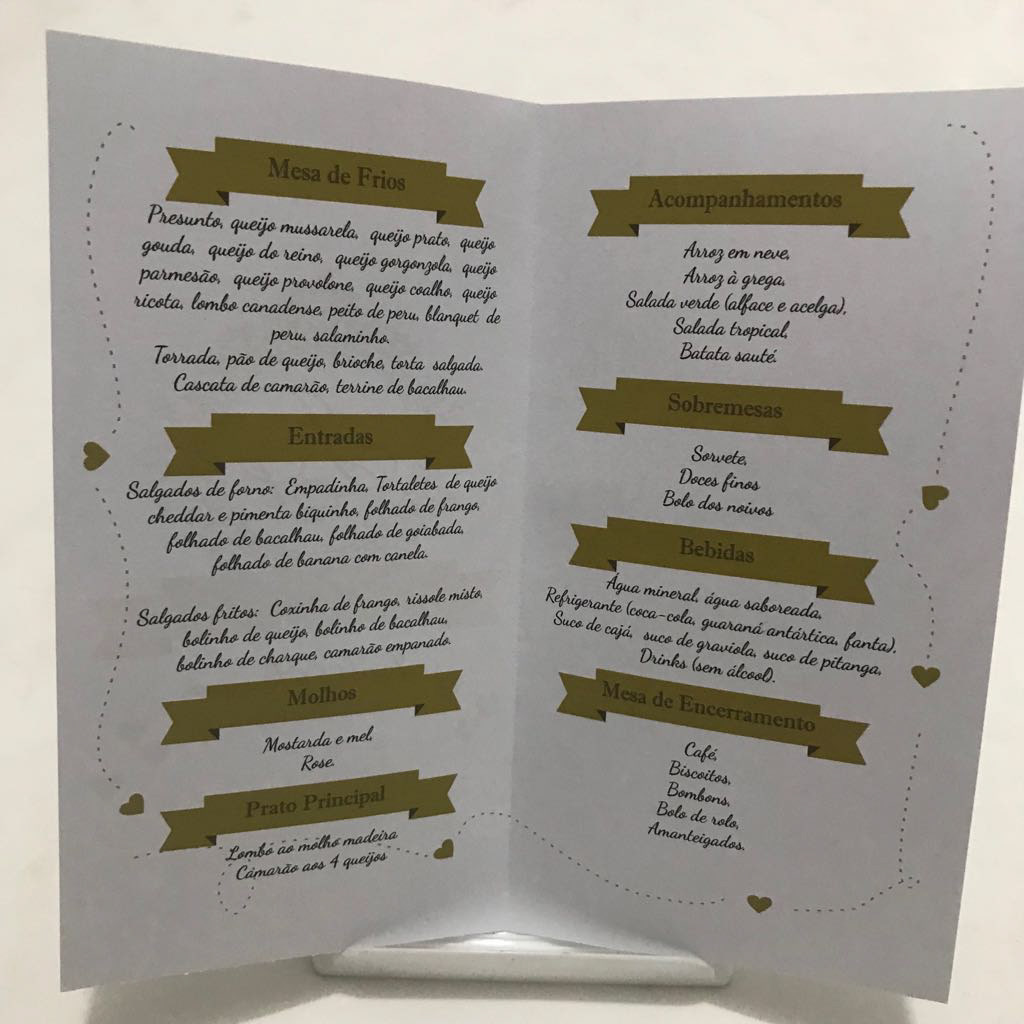 Mesa de Frios
Presunto, queijo mussarela, queijo prato, queijo
gouda, queijo do reino, queijo gorgonzola, queijo
parmesão, queijo provolone, queijo coalho, queijo
ricota, lombo canadense, peito de peru, blanquet de
peru, salaminho.
Torrada, pão de queijo, brioche, torta salgada.
Cascata de camarão, terrine de bacalhau.
Entradas
Salgados de forno: Empadinha, Tortaletes de queijo
cheddar e pimenta biquinho, folhado de frango,
folhado de bacalhau, folhado de goiabada,
folhado de banana com canela.
Salgados fritos: Coxinha de frango, rissole misto,
bolinho de queijo, bolinho de bacalhau,
bolinho de charque, camarão empanado.
Molhos
Mostarda e mel,
Rose.
Prato Principal
Lombo ao molho madeira
Camarão aos 4 queijos
Acompanhamentos
Arroz em neve,
Arroz à grega,
Salada verde (alface e acelga),
Salada tropical,
Batata sauté.
Sobremesas
Sorvete,
Doces finos
Bolo dos noivos
Bebidas
Água mineral, água saboreada,
Refrigerante (coca-cola, guaraná antártica, fanta),
Suco de cajá, suco de graviola, suco de pitanga,
Drinks (sem álcool).
Mesa de Encerramento
Café,
Biscoitos,
Bombons,
Bolo de rolo,
Amanteigados.